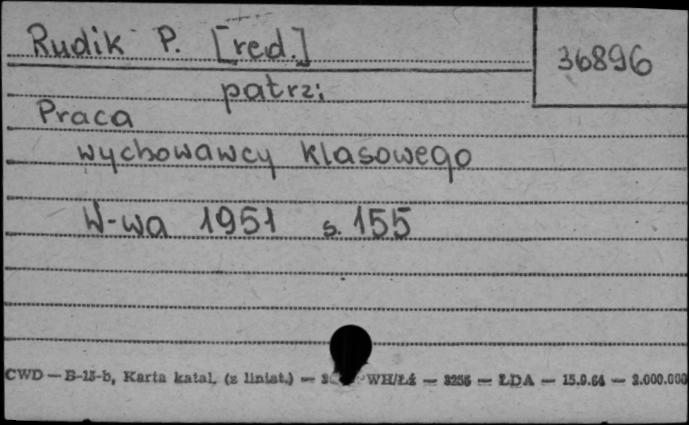 Rudik P. [red.]
36896
patrz:
Praca
wychowawcy klasowego
W-wa 1951 s. 155
CWD — B-15-b, Karta katal. (z liniat.) — WH/Łź — 3256 — ŁDA — 15.9.64 — 2.000.000